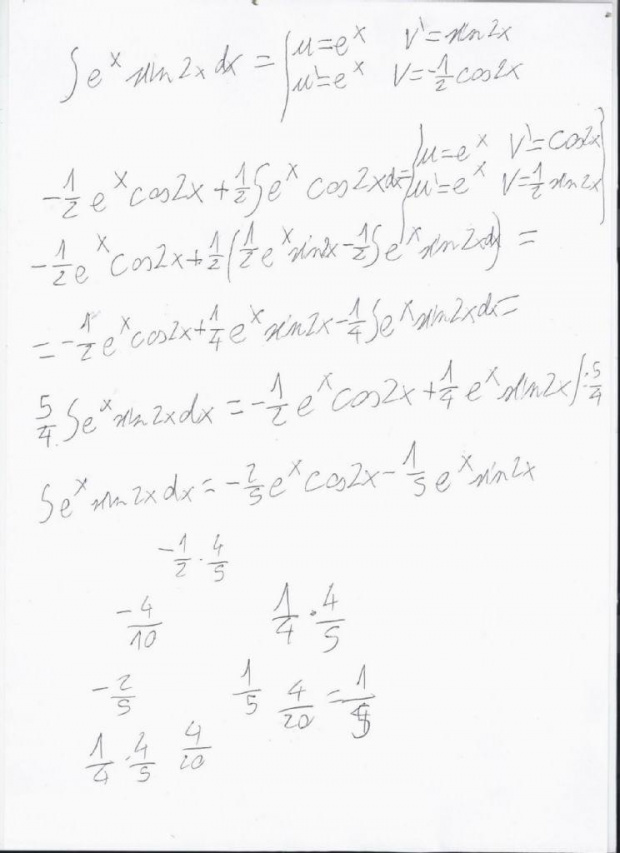 ∫e^x sin2x dx = { u=e^x v'=sin2x
u'=e^x v=-1/2 cos2x
-1/2 e^x cos2x + 1/2 ∫e^x cos2x dx = { u=e^x v'=cos2x
u'=e^x v=1/2 sin2x }
-1/2 e^x cos2x + 1/2 (1/2 e^x sin2x - 1/2 ∫e^x sin2x dx) =
= -1/2 e^x cos2x + 1/4 e^x sin2x - 1/4 ∫e^x sin2x dx =
5/4 ∫e^x sin2x dx = -1/2 e^x cos2x + 1/4 e^x sin2x /:5/4
∫e^x sin2x dx = -2/5 e^x cos2x - 1/5 e^x sin2x
-1/2 · 4/5
-4/10 1/4 · 4/5
-2/5 1/5 4/20 = 1/5
1/4 · 4/5 4/20